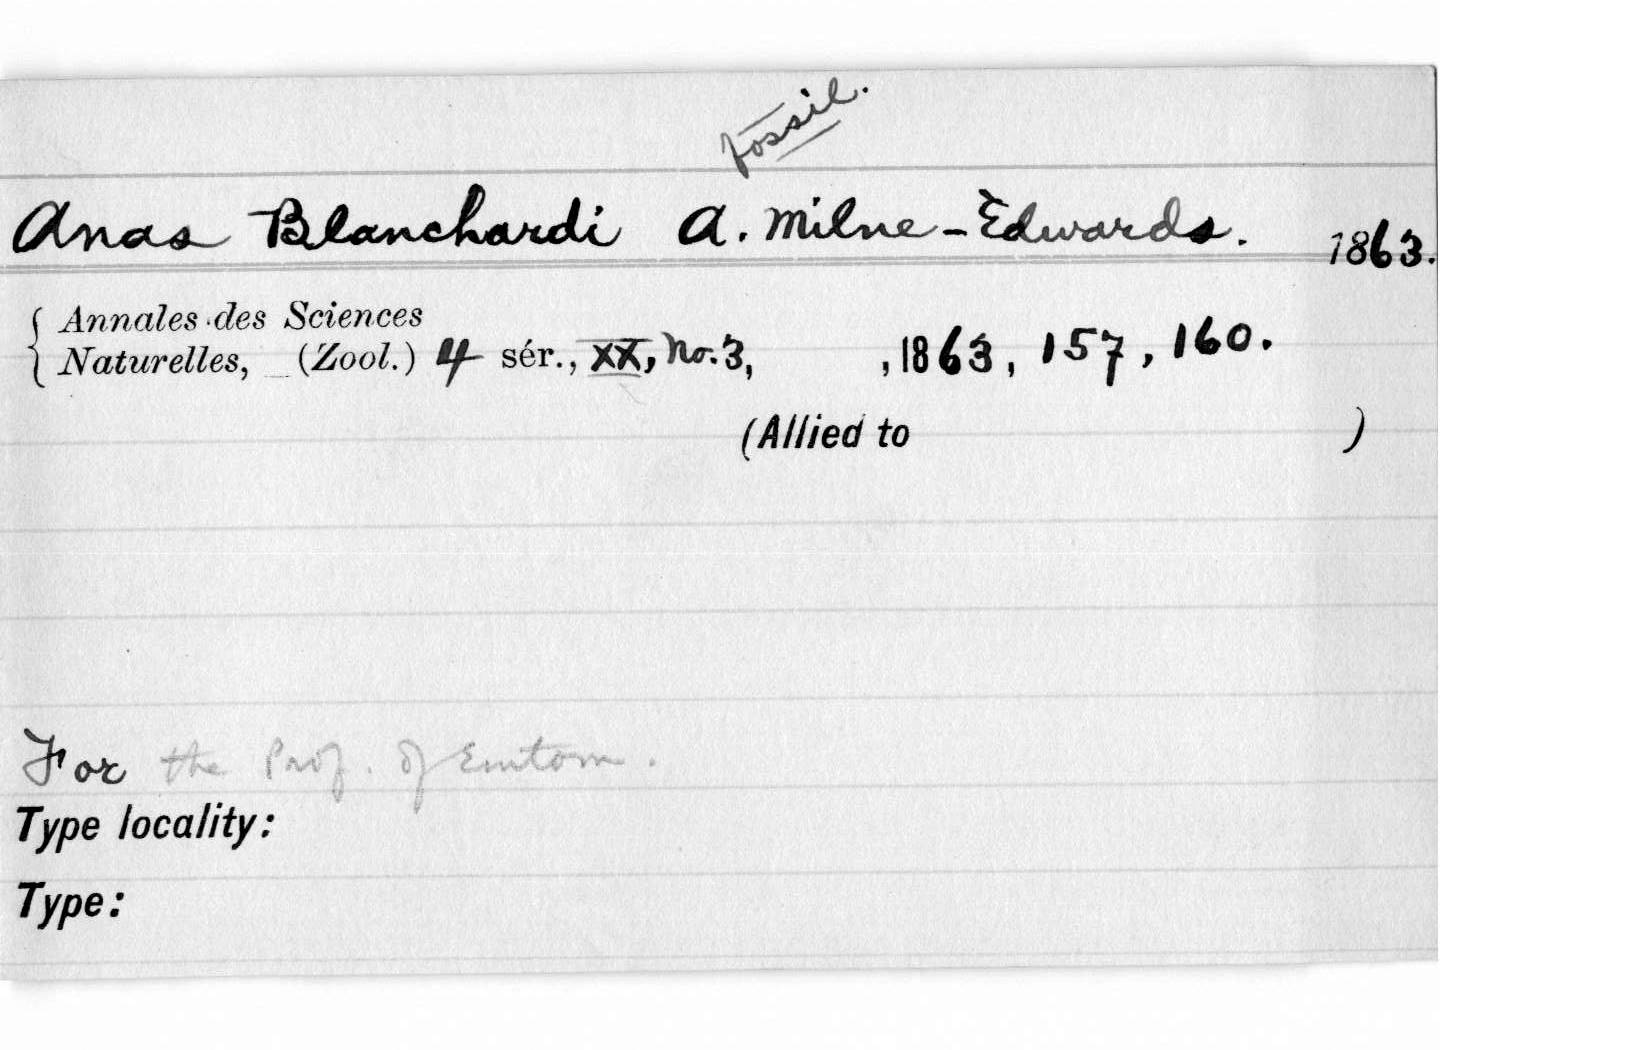 fossil.
Anas Blanchardi A. Milne-Edwards. 1863.
{ Annales des Sciences
Naturelles, (Zool.) 4 sér., XX, No. 3, , 1863, 157, 160.
(Allied to )
For the Prof. of Emtom.
Type locality:
Type: